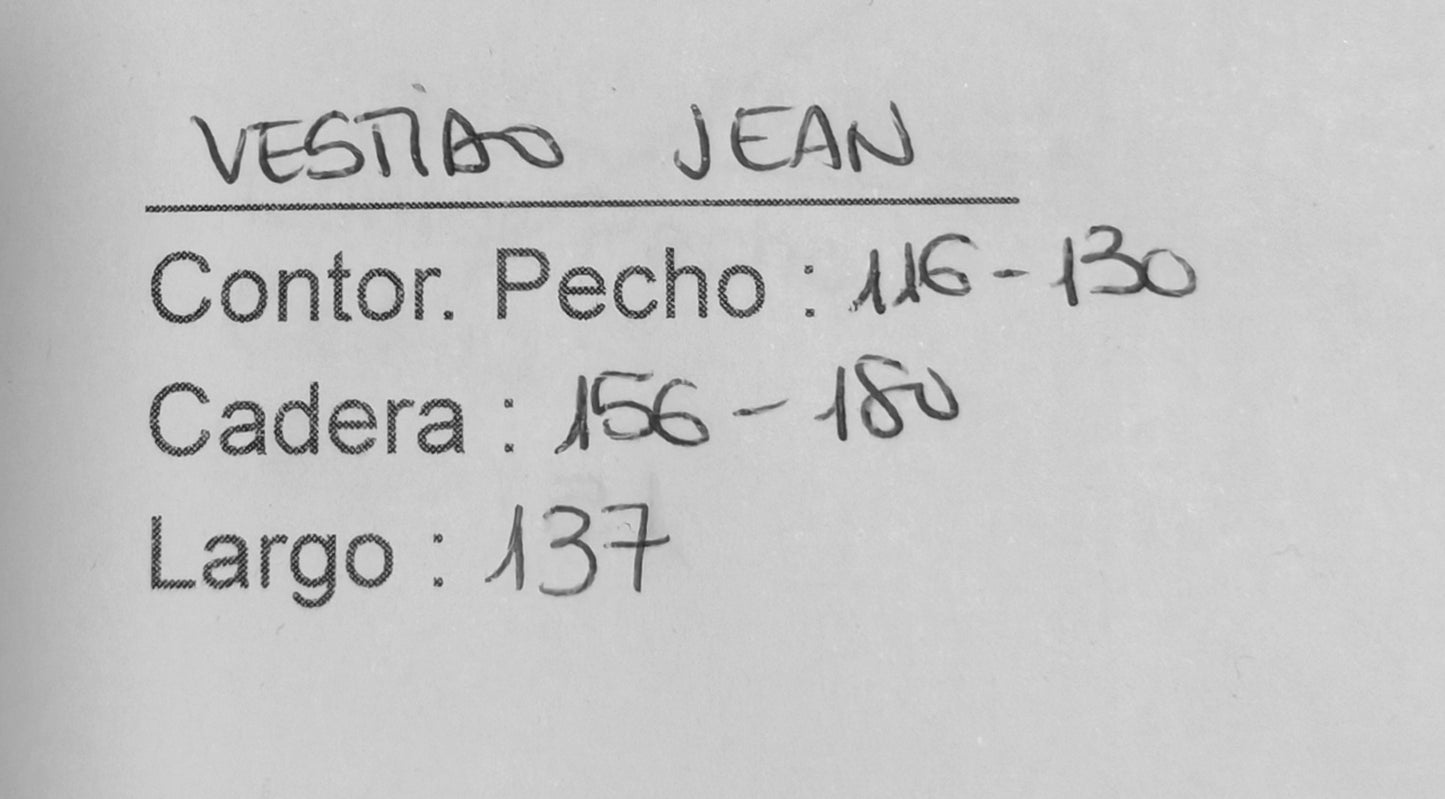 VESTIDO JEAN
Contor. Pecho : 116 - 130
Cadera : 156 - 180
Largo : 137